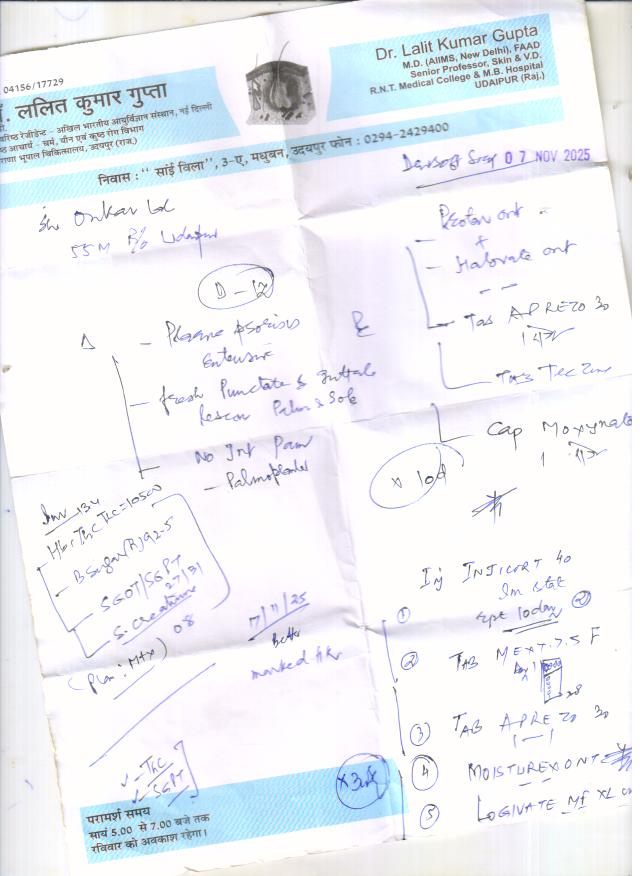 04156/17729
डॉ. ललित कुमार गुप्ता
वरिष्ठ रेजीडेन्ट - अखिल भारतीय आयुर्विज्ञान संस्थान, नई दिल्ली
आचार्य - चर्म, यौन एवं कुष्ठ रोग विभाग
राणा भूपाल चिकित्सालय, उदयपुर (राज.)
Dr. Lalit Kumar Gupta
M.D. (AIIMS, New Delhi), FAAD
Senior Professor, Skin & V.D.
R.N.T. Medical College & M.B. Hospital
UDAIPUR (Raj.)
निवास : "सांई विला", 3-ए, मधुबन, उदयपुर फोन : 0294-2429400
07 NOV 2025
Onkar Lal
55 M R/o Udaipur
D-12
Δ - Plaque Psoriasis
Extensive
- fresh Punctate & Guttate
Lesion Palm & Sole
No Jnt Pain
- Palmoplantar
- Halovate ont
- Tab APREZO 30
Tab Teczine
Cap Moxymate
x 10d
Inv
Hb 134 TLC = 10500
B Sugar (R) 92.5
SGOT/SGPT
27/31
S. Creatinine
0.8
(Plan: Mtx)
7/11/25
better
✓ TLC
✓ SGPT
Inj INJICORT 40
Im stat
rpt 10 day
② TAB MEXT 7.5 F
③ TAB APREZO 30
④ MOISTUREX ONT
⑤ LOGIVATE MF XL
परामर्श समय
सायं 5.00 से 7.00 बजे तक
रविवार को अवकाश रहेगा।